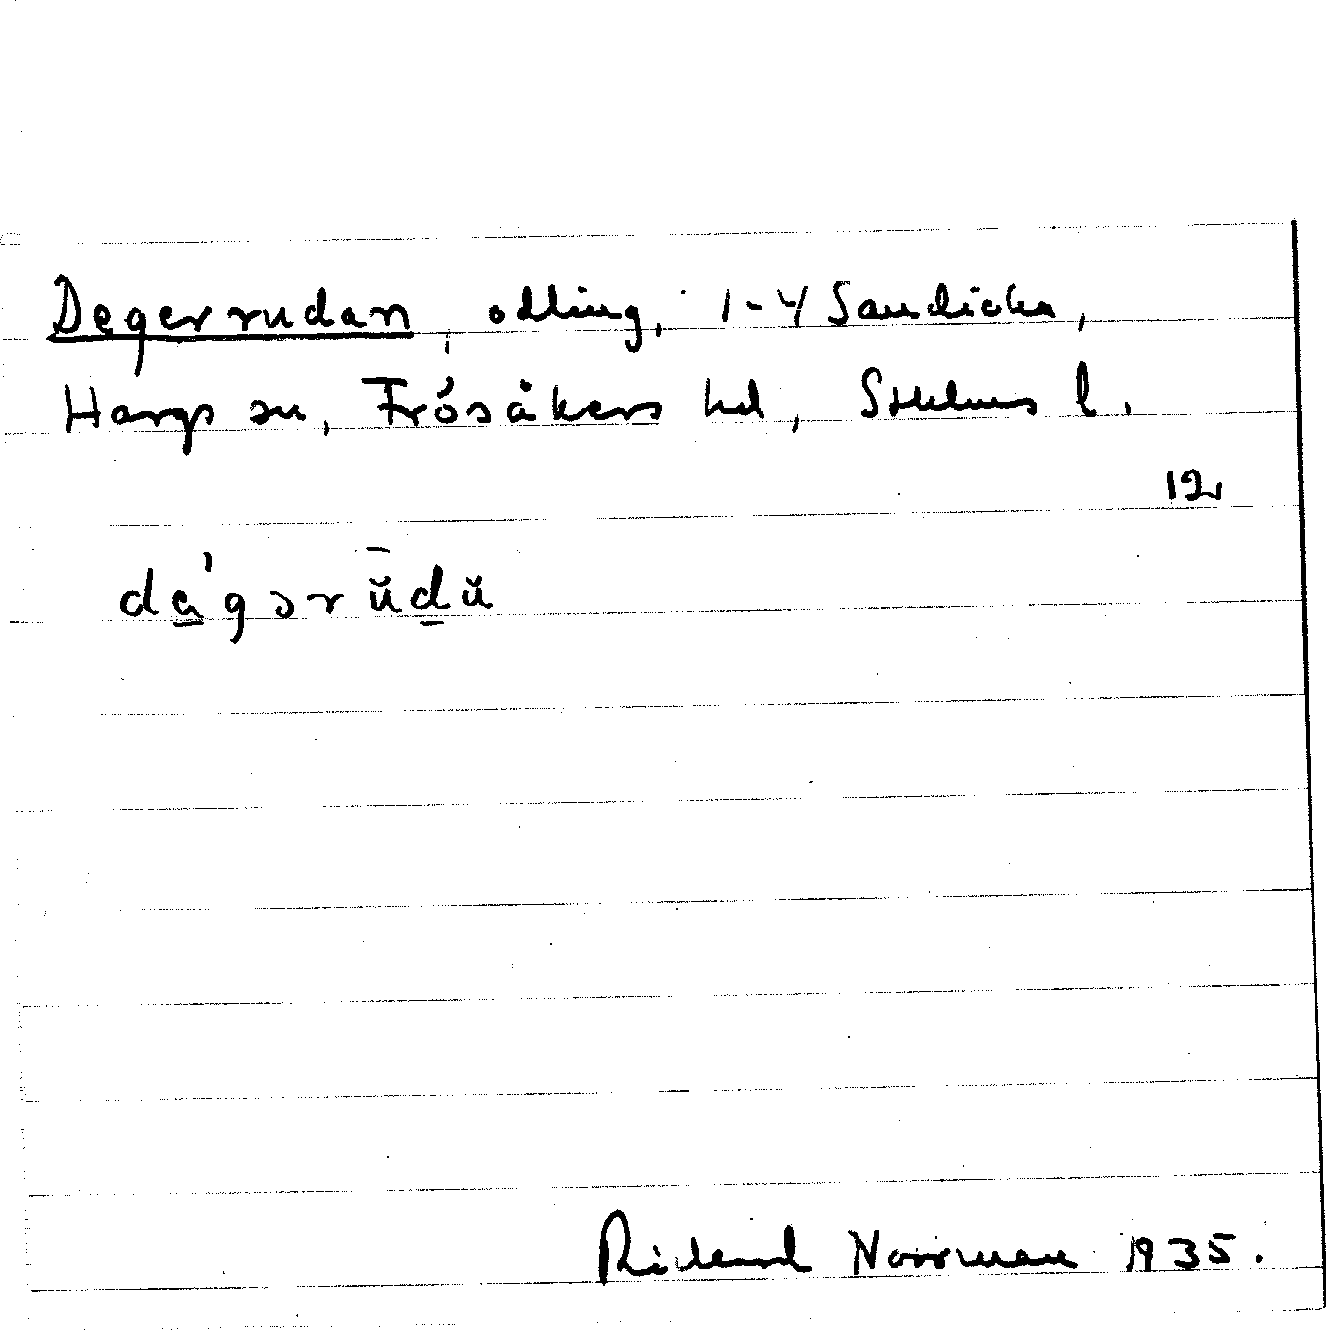 Degerrudan, odling, 1-4 Sandicka,
Hargs sn, Frösåkers hd, Sthlms l.
12
dа̲'gərūdu
Rickard Norrman 1935.